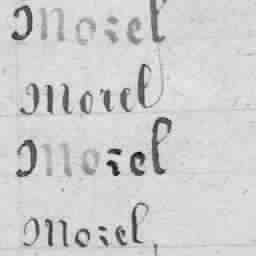 Morel
Morel
Morel
Morel,